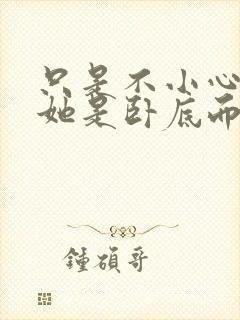 只是不小心
她是卧底而
鍾碩哥